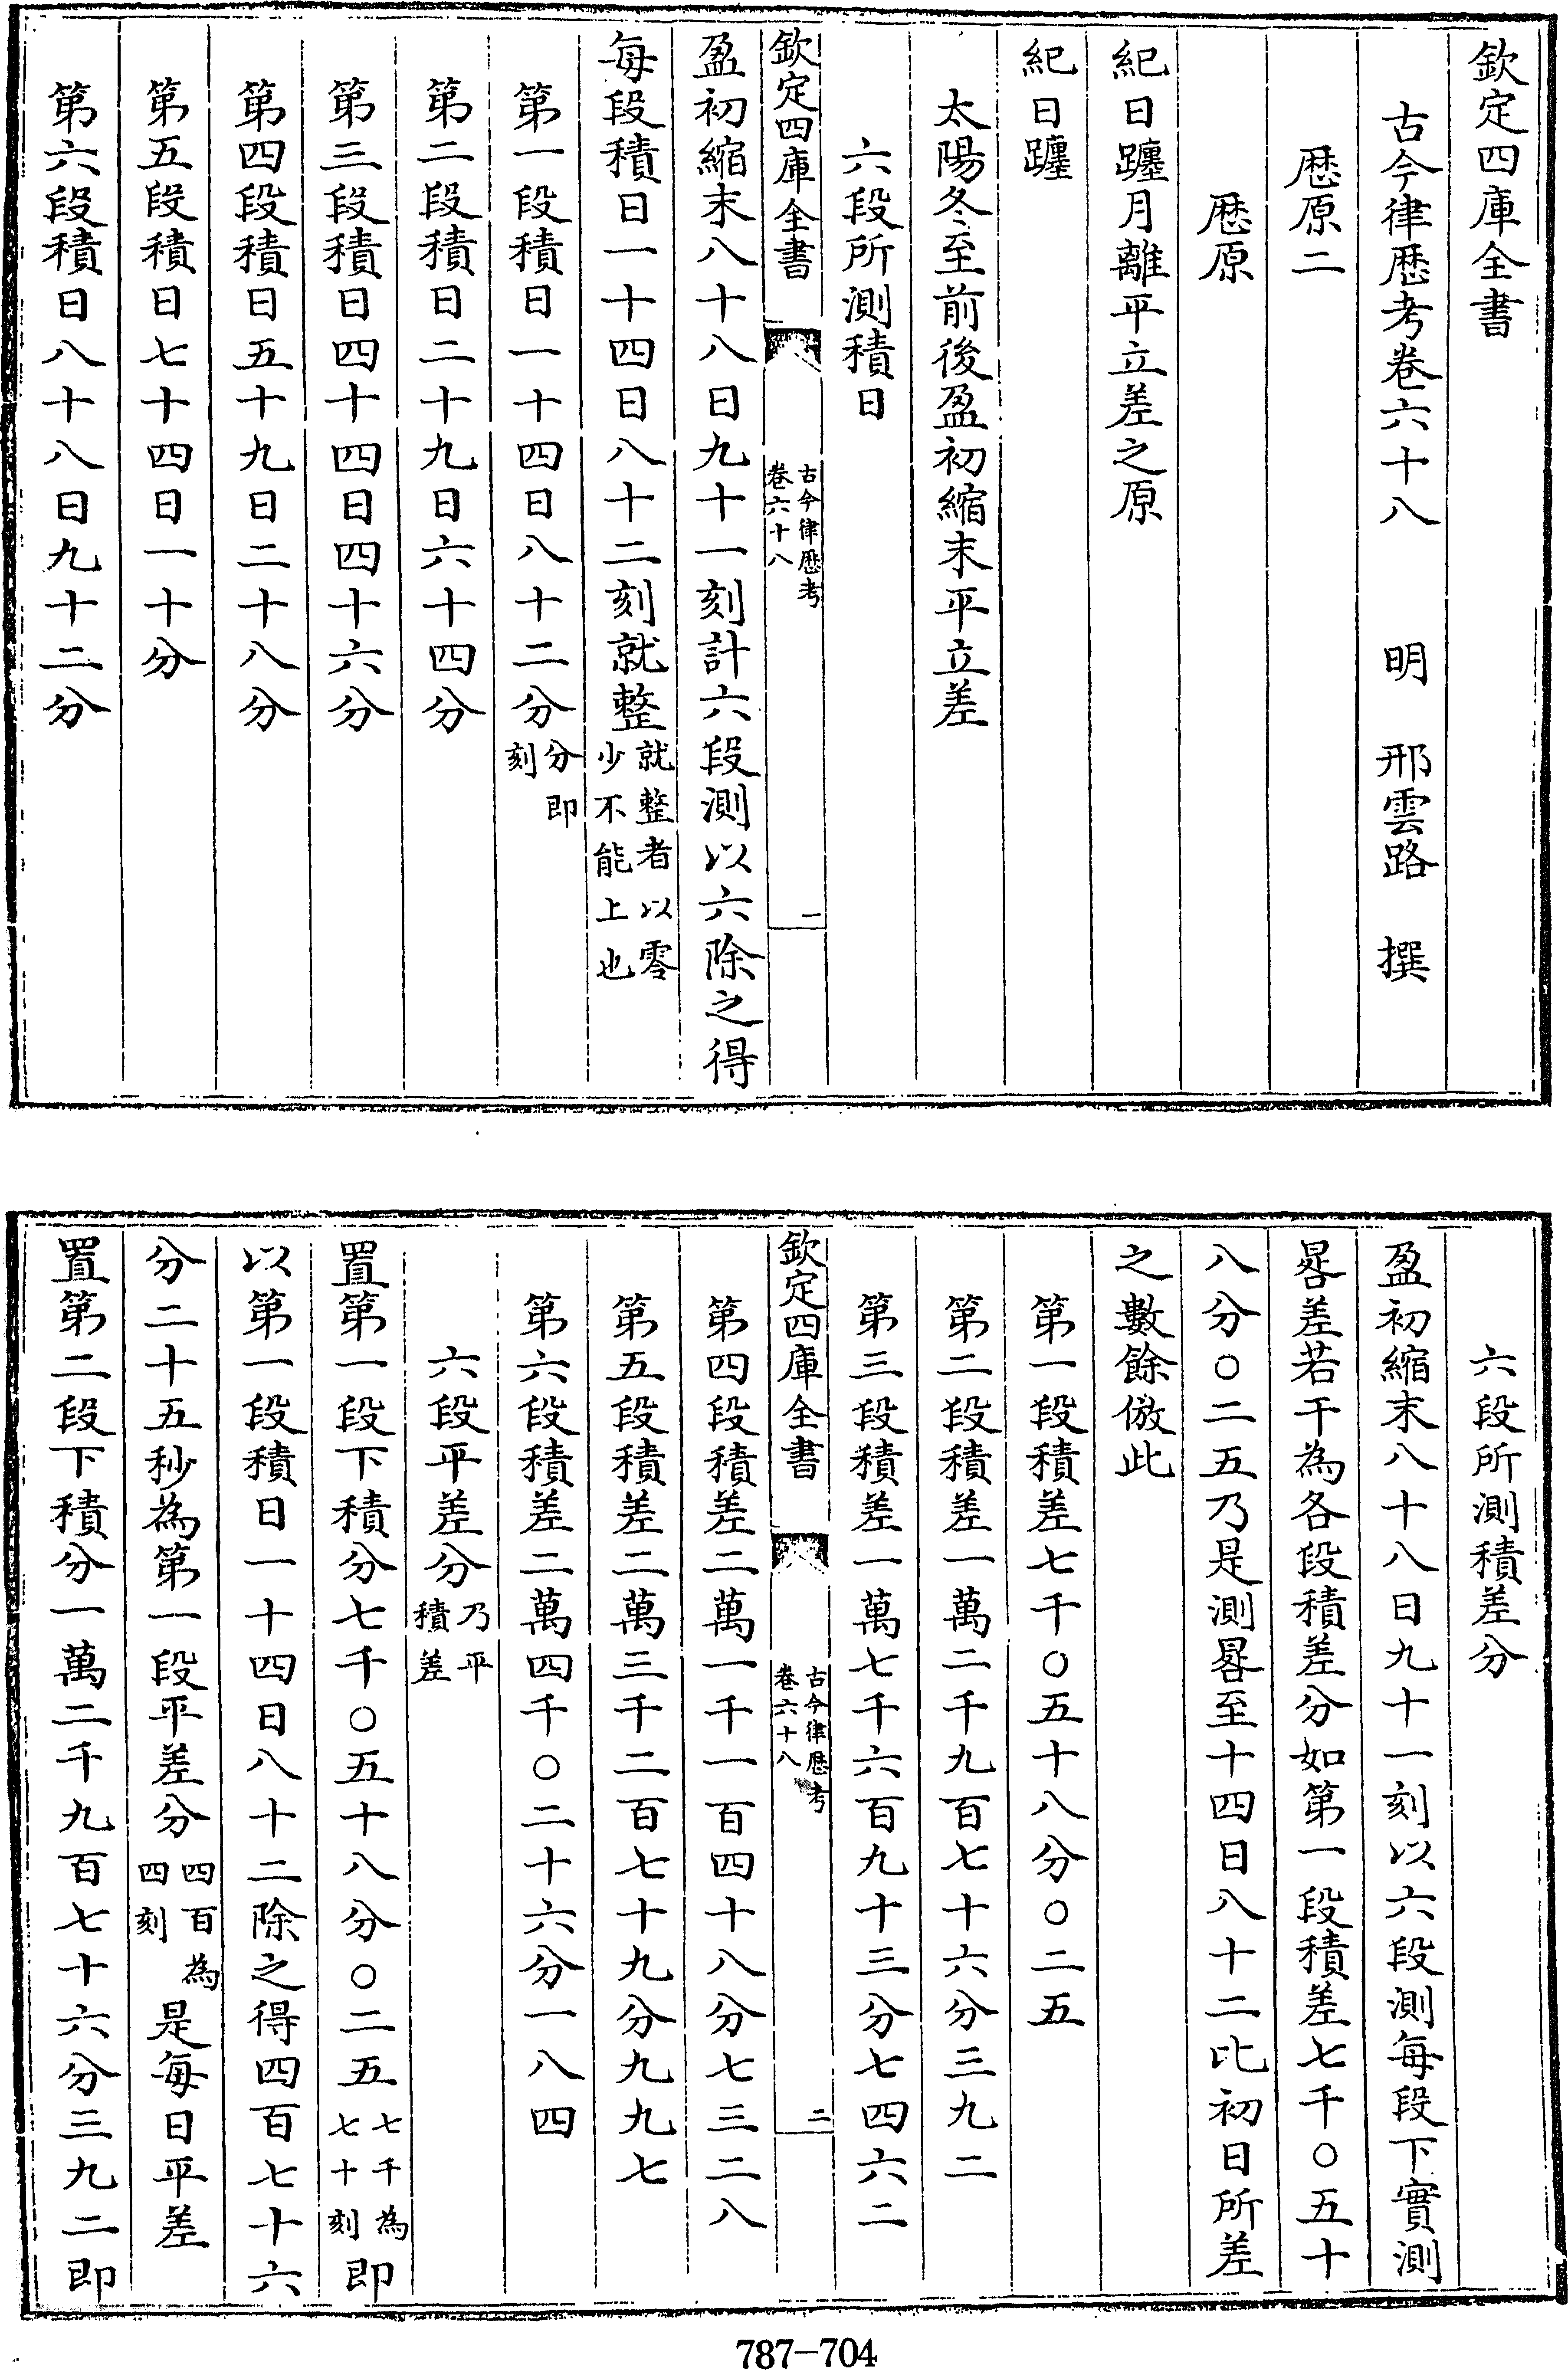 欽定四庫全書
古今律歴考卷六十八　明　邢雲路　撰
歴原二
歴原
紀日躔月離平立差之原
紀日躔
太陽冬至前後盈初縮末平立差
六段所測積日
欽定四庫全書
古今律歴考
卷六十八
一
盈初縮末八十八日九十一刻計六段測以六除之得
每段積日一十四日八十二刻就整就整者以零少不能上也
第一段積日一十四日八十二分分即刻
第二段積日二十九日六十四分
第三段積日四十四日四十六分
第四段積日五十九日二十八分
第五段積日七十四日一十分
第六段積日八十八日九十二分
六段所測積差分
盈初縮末八十八日九十一刻以六段測每段下實測
晷差若干為各段積差分如第一段積差七千〇五十
八分〇二五乃是測晷至十四日八十二比初日所差
之數餘倣此
第一段積差七千〇五十八分〇二五
第二段積差一萬二千九百七十六分三九二
第三段積差一萬七千六百九十三分七四六二
欽定四庫全書
古今律歴考
卷六十八
二
第四段積差二萬一千一百四十八分七三二八
第五段積差二萬三千二百七十九分九九七
第六段積差二萬四千〇二十六分一八四
六段平差分乃平積差
置第一段下積分七千〇五十八分〇二五七千為七十刻即
以第一段積日一十四日八十二除之得四百七十六
分二十五秒為第一段平差分四百為四刻是每日平差
置第二段下積分一萬二千九百七十六分三九二即
787-704